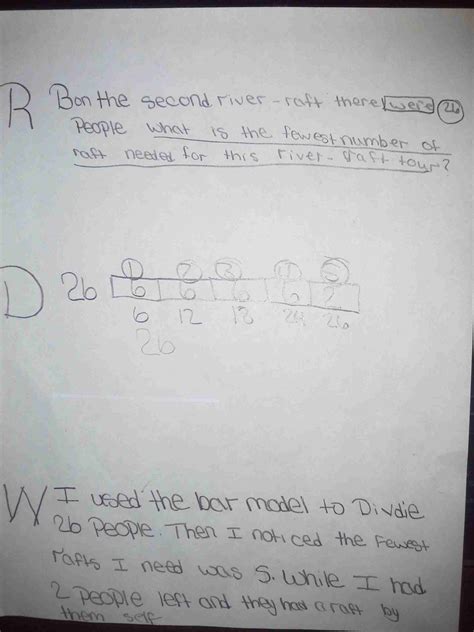 R B on the second river-raft there were 26
People what is the fewest number of
raft needed for this river-raft tour?
1 2 3 4 5
D 26 6 6 6 6 2
6 12 18 24 26
26
W I used the bar model to Divdie
26 People. Then I noticed the Fewest
rafts I need was 5. While I had
2 People left and they had a raft by
them self